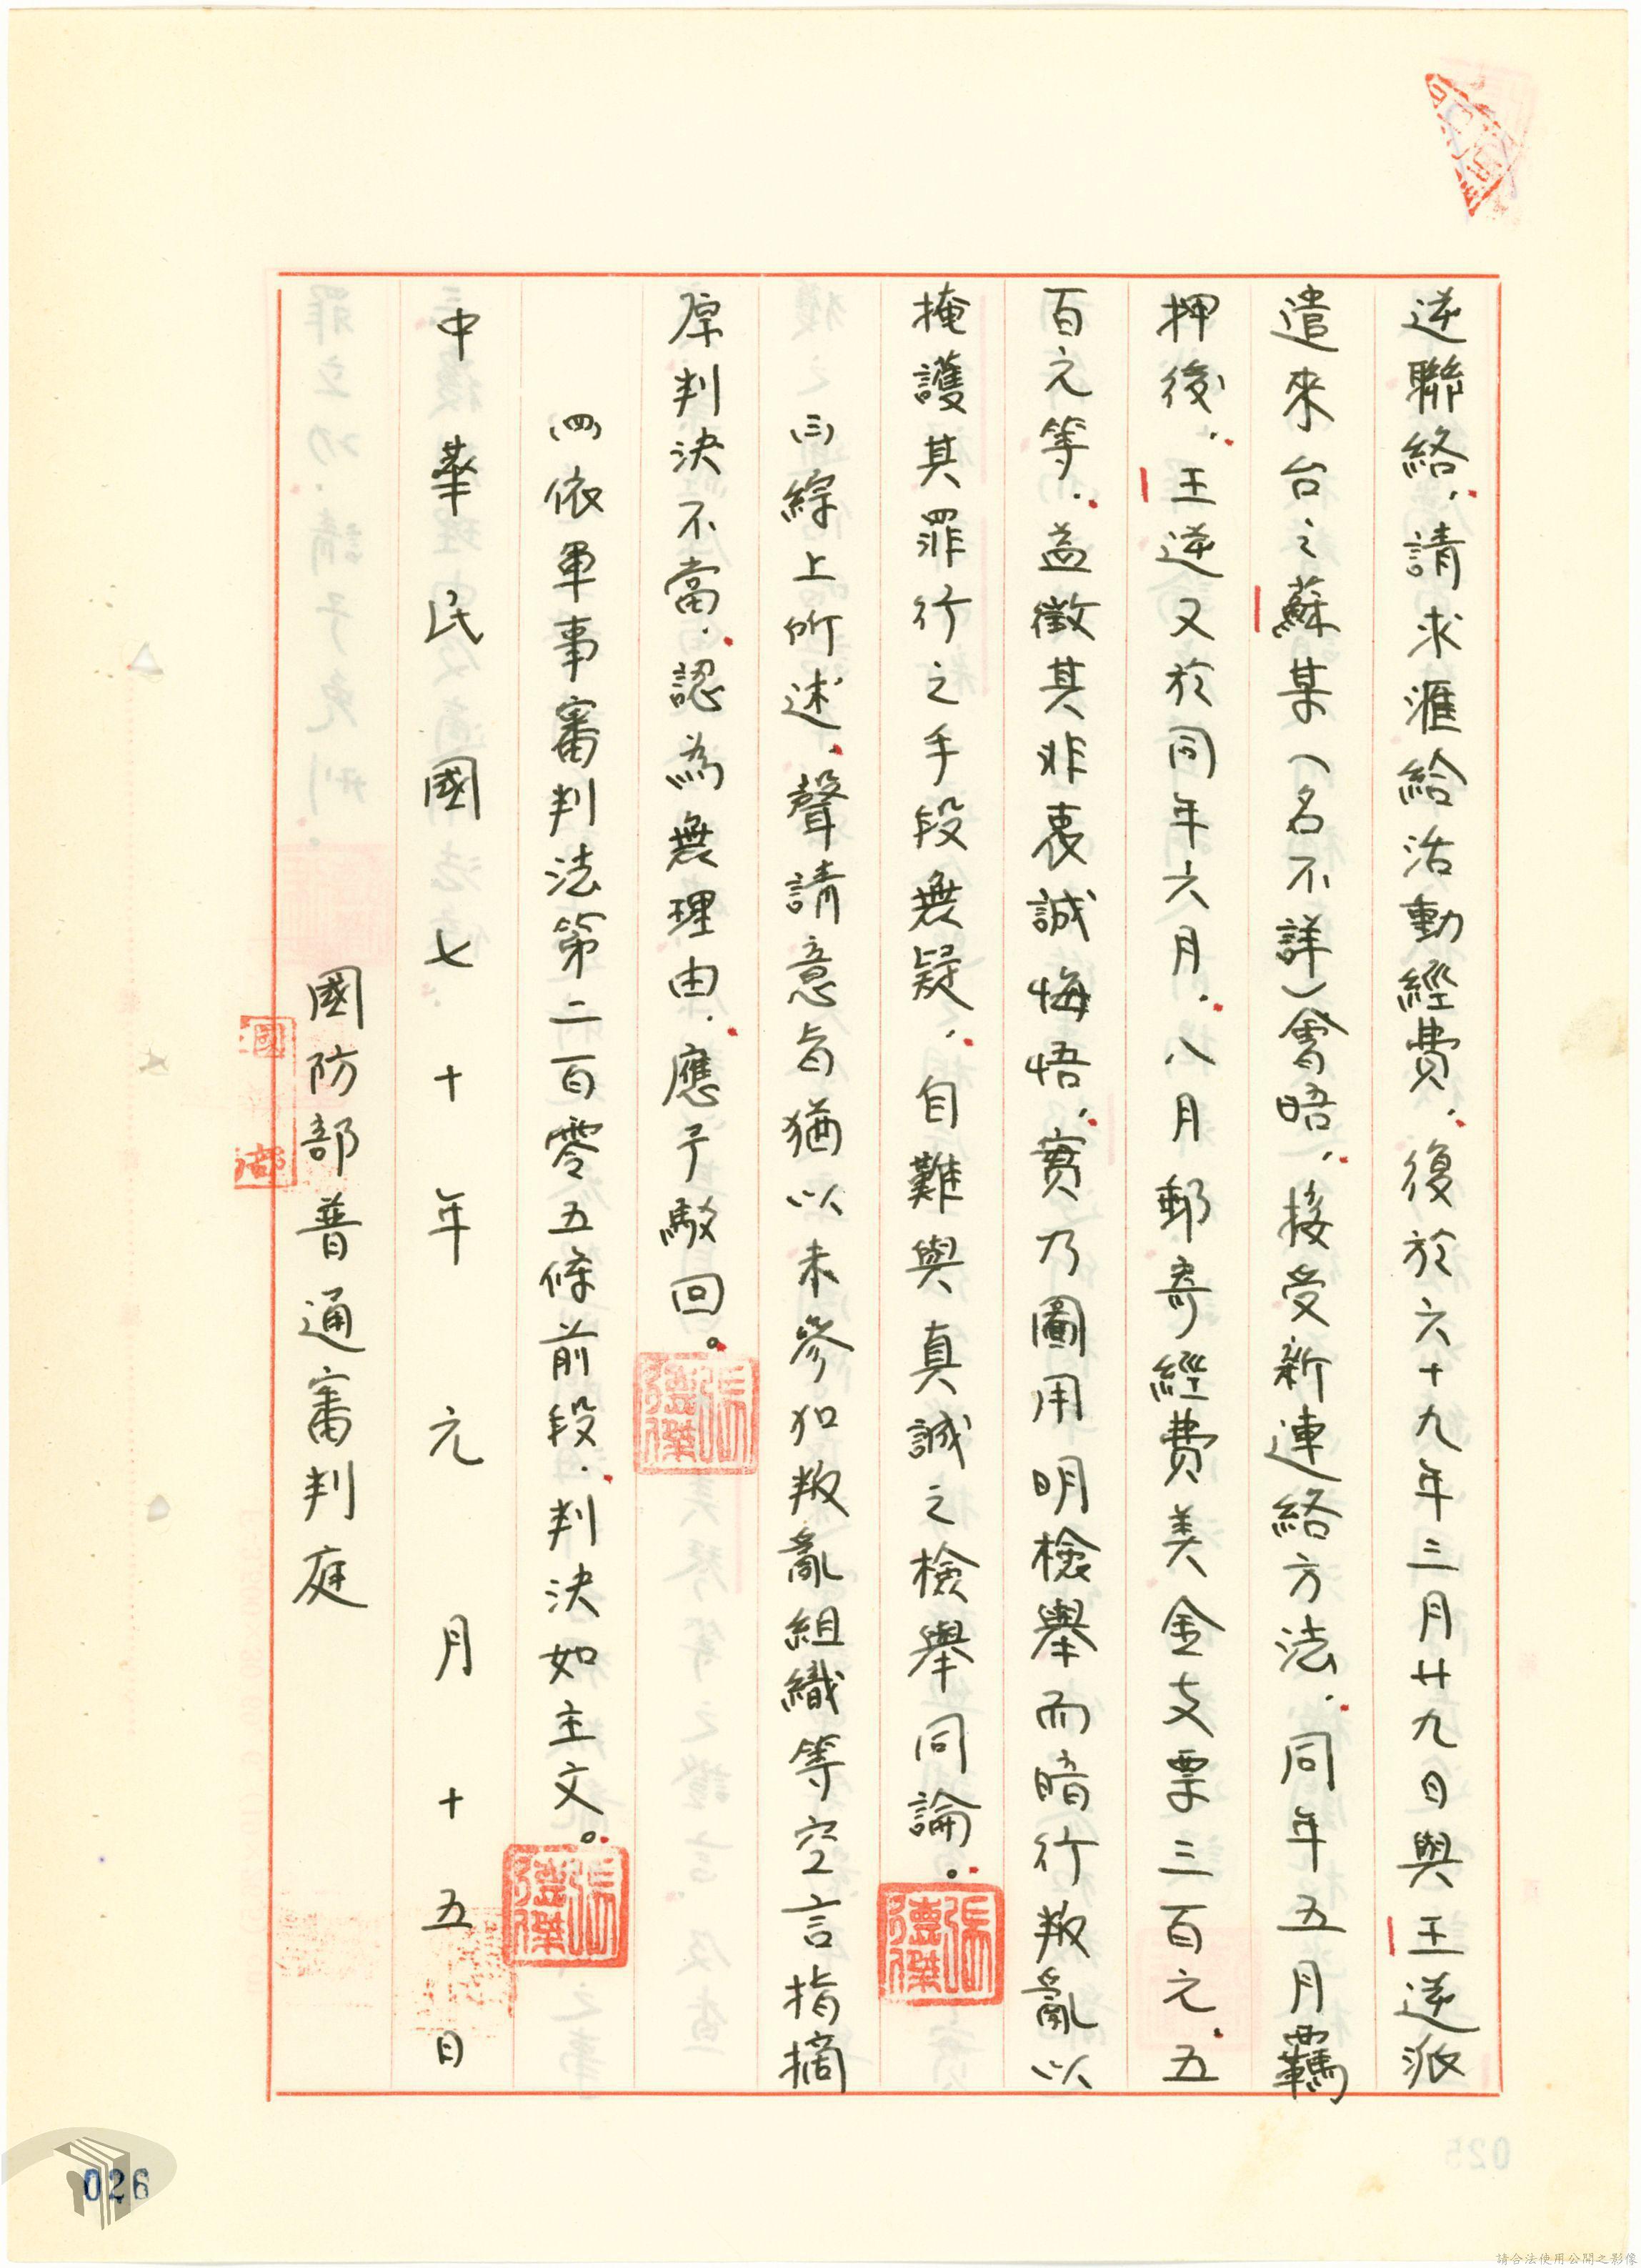 逆聯絡，請求滙給活動經費，復於六十九年三月廿九日與王逆派
遣來台之蘇某（名不詳）會晤，接受新連絡方法，同年五月羈
押後，王逆又於同年六月，八月郵寄經費美金支票三百元，五
百元等，益徵其非衷誠悔悟，實乃圖用明檢舉而暗行叛亂以
掩護其罪行之手段無疑，自難與真誠之檢舉同論。
張德傑
㈢綜上所述，聲請意旨猶以未參加叛亂組織等空言指摘
原判決不當，認為無理由，應予駁回。
張德傑
㈣依軍事審判法第二百零五條前段，判決如主文。
張德傑
中華民國七十年元月十五日
國防部普通審判庭
國
部
026
請合法使用公開之影像